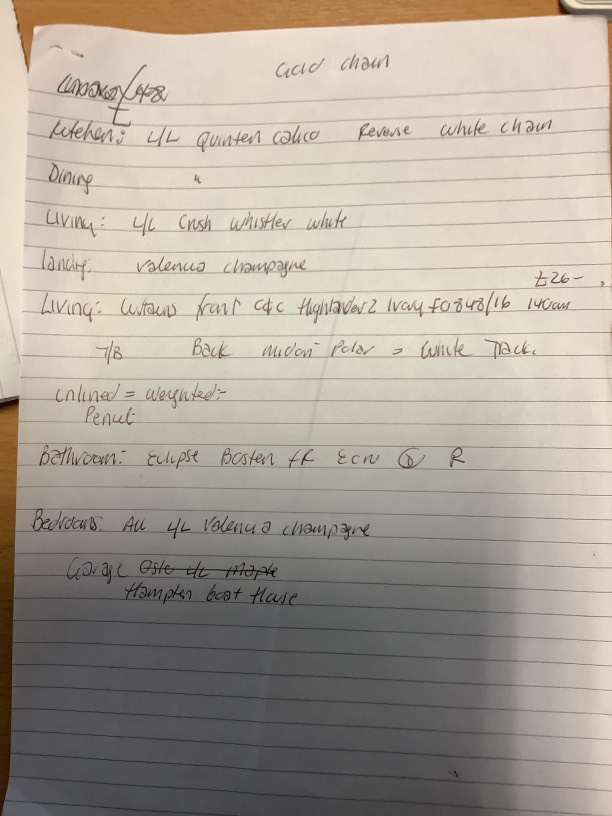 Gold chain
Kitchen: L/L Quinten Calico Reverse white chain
Dining "
Living: L/L Crush Whistler white
Landry. Valencia champagne
£26-
Living: Curtains front C&C Highlander 2 Ivory F0848/16 140cm
T/B Back Polar = White Track.
Unlined = Weighted:-
Pencil
Bathroom: Eclipse Bosten FR Ecru R
Bedrooms: All L/L Valencia champagne
Garage
Hampten boat Hase